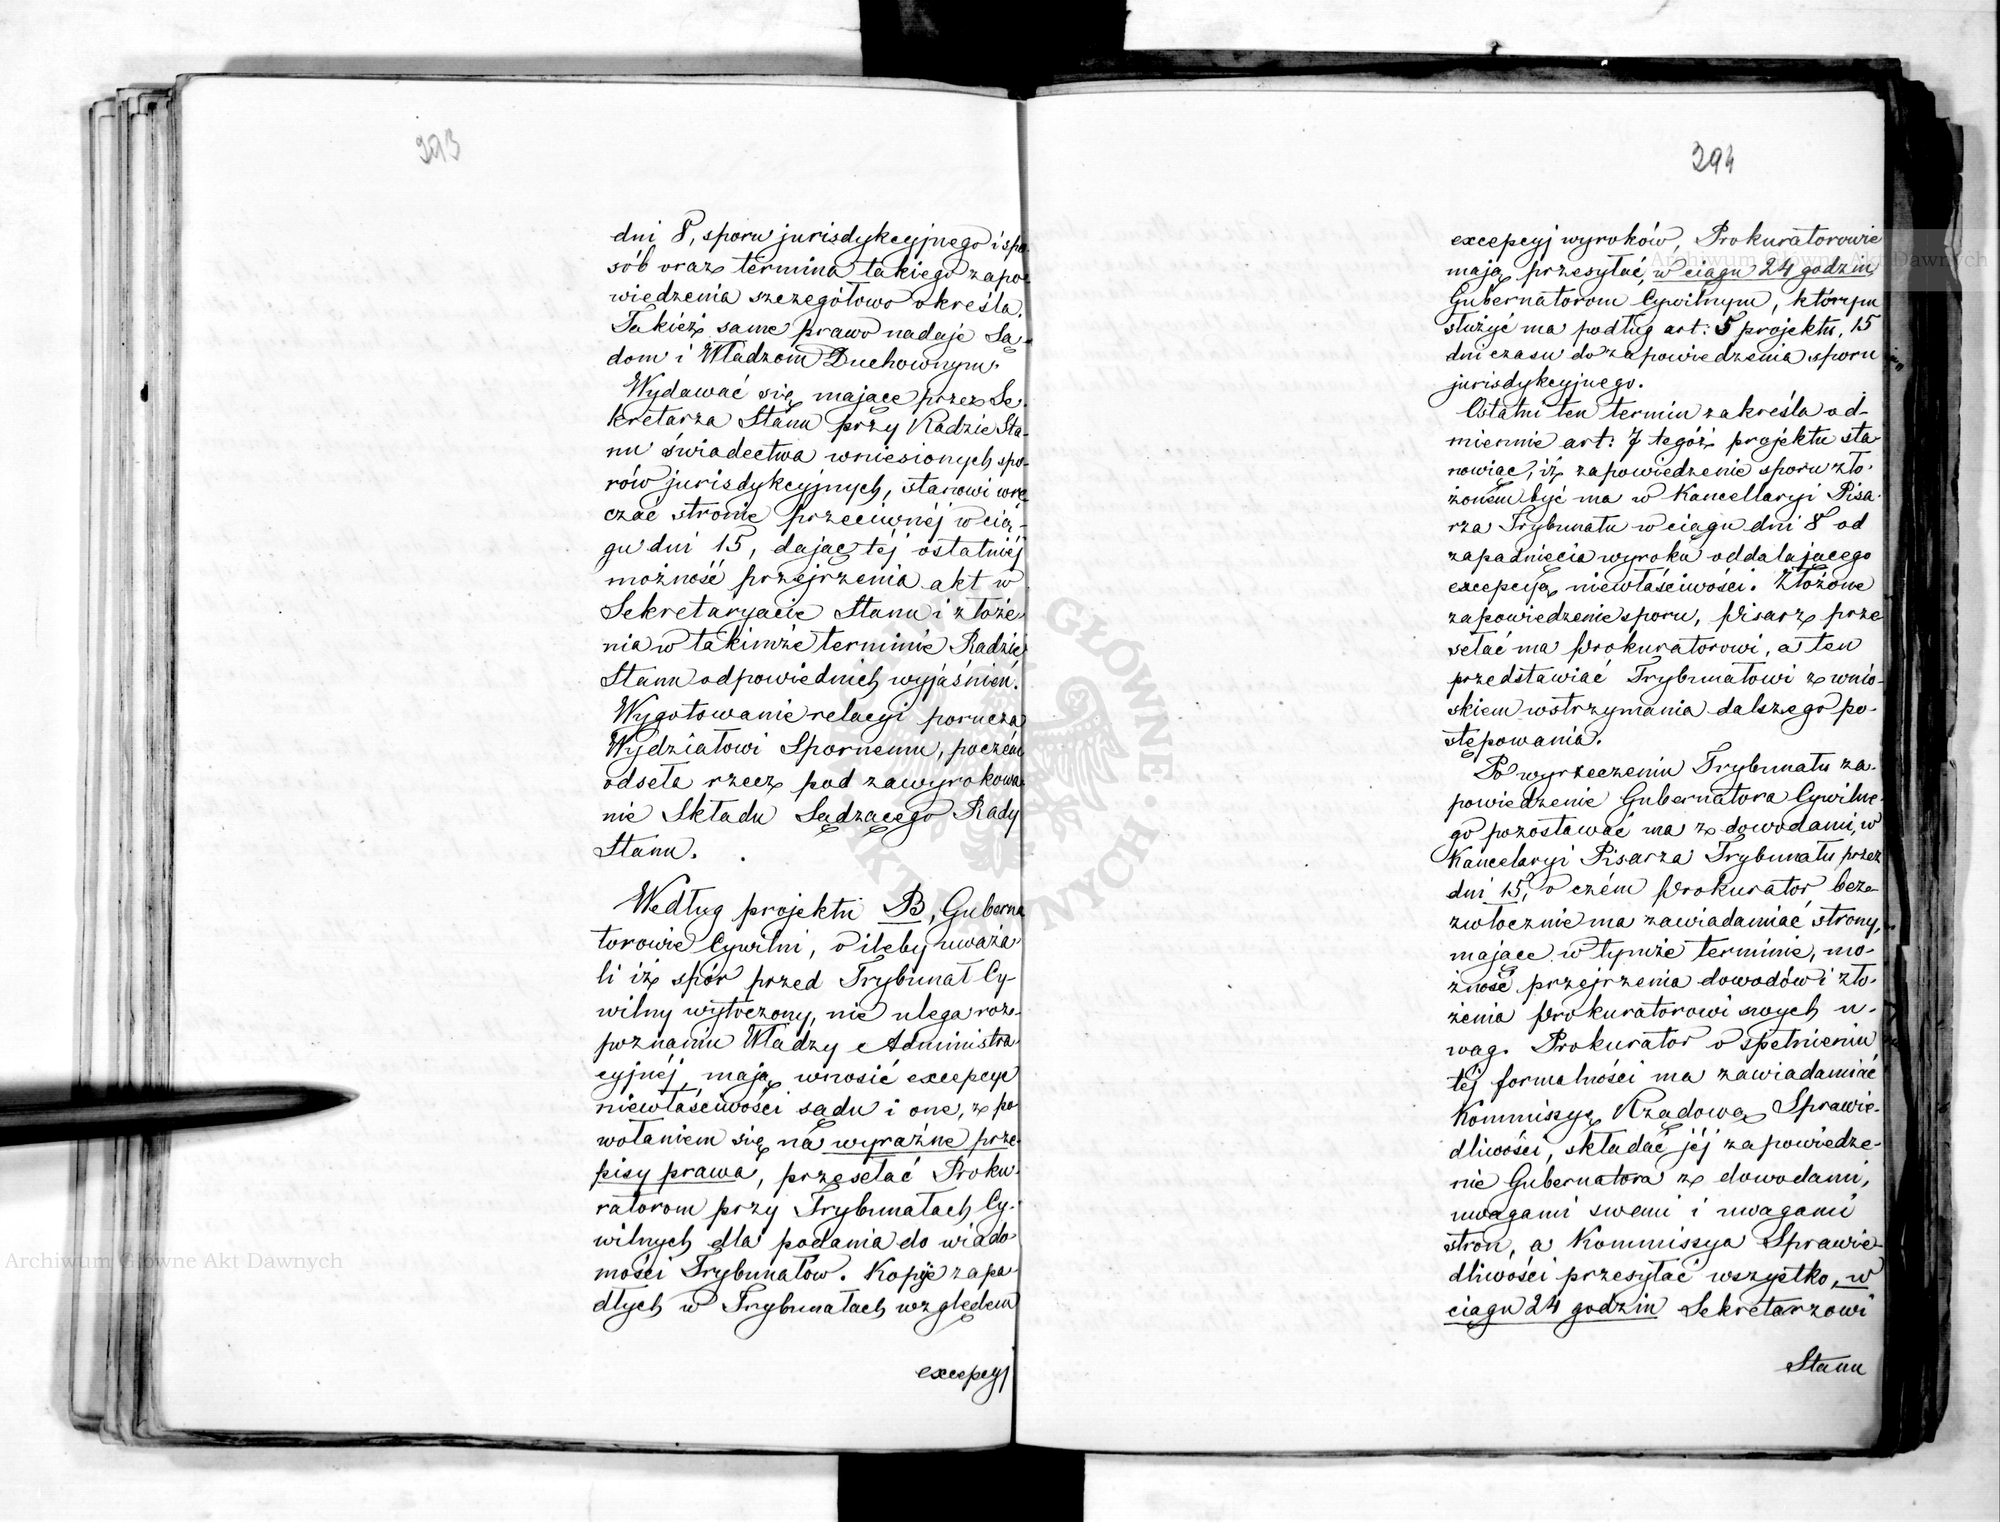 293
dni 8, sporu jurisdykcyjnego i spo-
sób oraz termina takiego zapo-
wiedzenia szczegółowo określa.
Takież same prawo nadaje Są-
dom i Władzom Duchownym.
Wydawać się mające przez Se-
kretarza Stanu przy Radzie Sta-
nu świadectwa wniesionych spo-
rów jurisdykcyjnych, stanowi wrę-
czać stronie przeciwnéj w cią-
gu dni 15, dając téj ostatniéj
możność przejrzenia akt w
Sekretaryacie Stanu i złoże-
nia w takimże terminie Radzie
Stanu odpowiednich wyjaśnień.
Wygotowanie relacyi porucza
Wydziałowi Spornemu, poczém
odseła rzecz pod zawyrokowa-
nie Składu Sądzącego Rady
Stanu.
Według projektu B, Guberna
torowie Cywilni, o ileby uważa-
li iż spór przed Trybunał Cy-
wilny wytoczony, nie ulega roz-
poznaniu Władzy Administra-
cyjnéj, mają wnosić excepcye
niewłaściwości sądu i one, z po-
wołaniem się na wyraźne prze-
pisy prawa, przesełać Proku-
ratorom przy Trybunałach Cy-
wilnych dla podania do wiado-
mości Trybunałów. Kopije zapa-
dłych w Trybunałach względem
excepcyj
294
excepcyj wyroków, Prokuratorowie
mają przesyłać, w ciągu 24 godzin
Gubernatorom Cywilnym, którym
służyć ma podług art: 5 projektu, 15
dni czasu do zapowiedzenia sporu
jurisdykcyjnego.
Ostatni ten termin zakreśla od-
miennie art: 7 tegóż projektu sta-
nowiąc, iż zapowiedzenie sporu zło-
żoném być ma w Kancellaryi Pisa-
rza Trybunału w ciągu dni 8 od
zapadnięcia wyroku oddalającego
excepcyą niewłaściwości. Złożone
zapowiedzenie sporu, Pisarz prze-
sełać ma Prokuratorowi, a ten
przedstawiać Trybunałowi z wnio-
skiem wstrzymania dalszego po-
stępowania.
Po wyrzeczeniu Trybunału za-
powiedzenie Gubernatora Cywilne-
go pozostawać ma z dowodami, w
Kancelaryi Pisarza Trybunału przez
dni 15, o czém Prokurator beze-
zwłocznie ma zawiadamiać strony,
mające w tymże terminie, mo-
żność przejrzenia dowodów i zło-
żenia Prokuratorowi swych u-
wag. Prokurator o spełnieniu
téj formalności ma zawiadamiać
Kommissyę Rządową Sprawie-
dliwości, składać jéj zapowiedze-
nie Gubernatora z dowodami,
uwagami swemi i uwagami
stron, a Kommissya Sprawie-
dliwości przesyłać wszystko, w
ciągu 24 godzin Sekretarzowi
Stanu
Archiwum Główne Akt Dawnych
Archiwum Główne Akt Dawnych